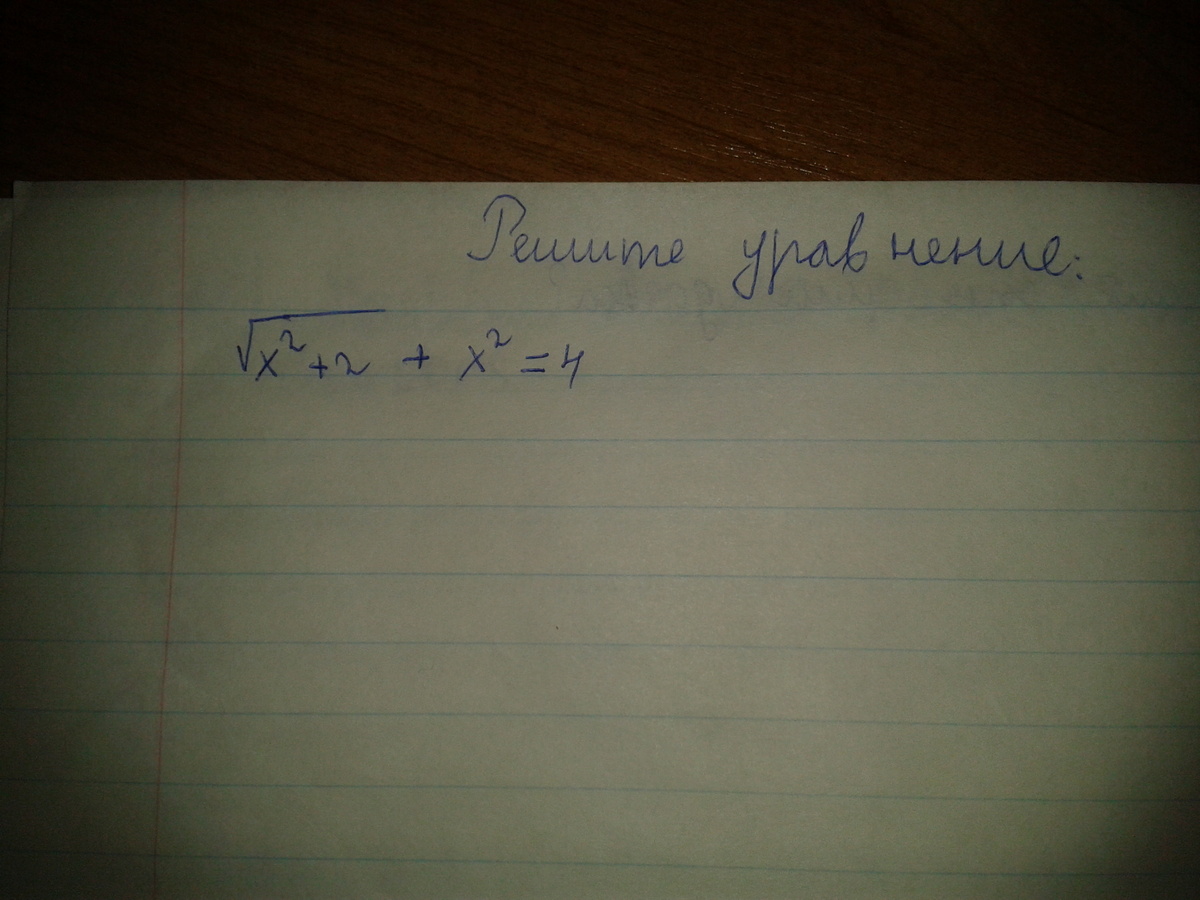 Решите уравнение:
√x²+2 + x² = 4